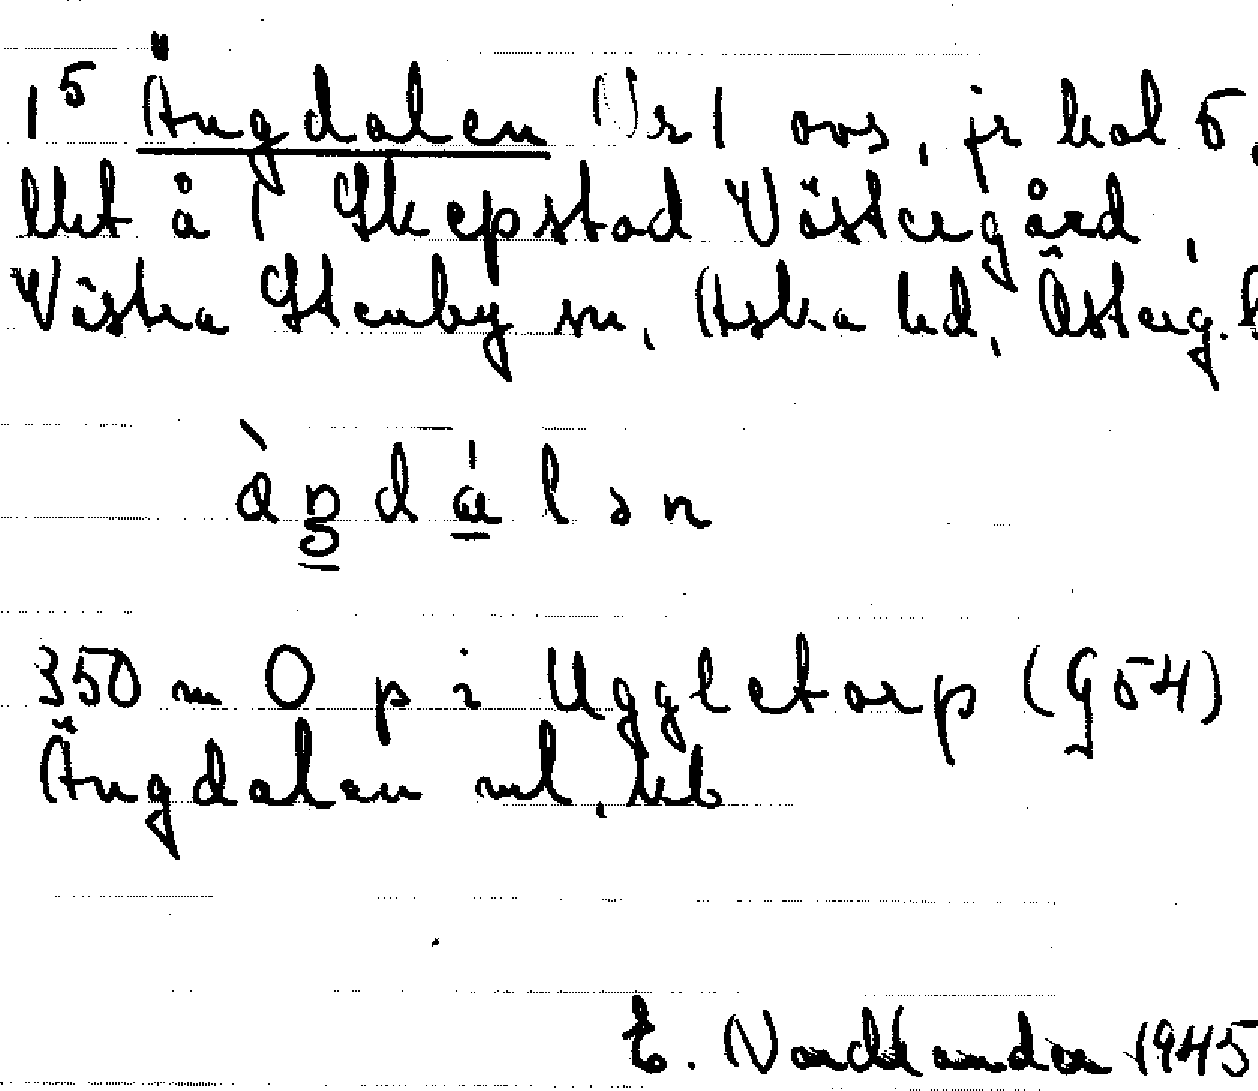 1⁵ Ängdalen Nr 1 ovs, jr kol 5,
lht å 1 Skepstad Västergård,
Västra Stenby sn, Aska hd, Österg. l
350 m O p i Uggletorp (G54)
Ängdalen ul, kb
E. Nordlander 1945